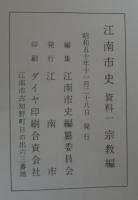 江南市史 資料一 宗教編
昭和五十年十一月二十八日 発行
編集 江南市史編纂委員会
発行 江南市
印刷 ダイヤ印刷合資会社
江南市古知野町日の出六三番地